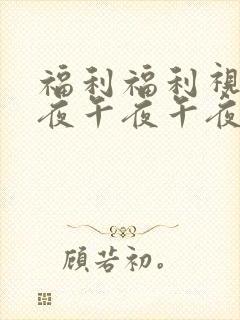 福利福利視
夜午夜午夜
顧若初。